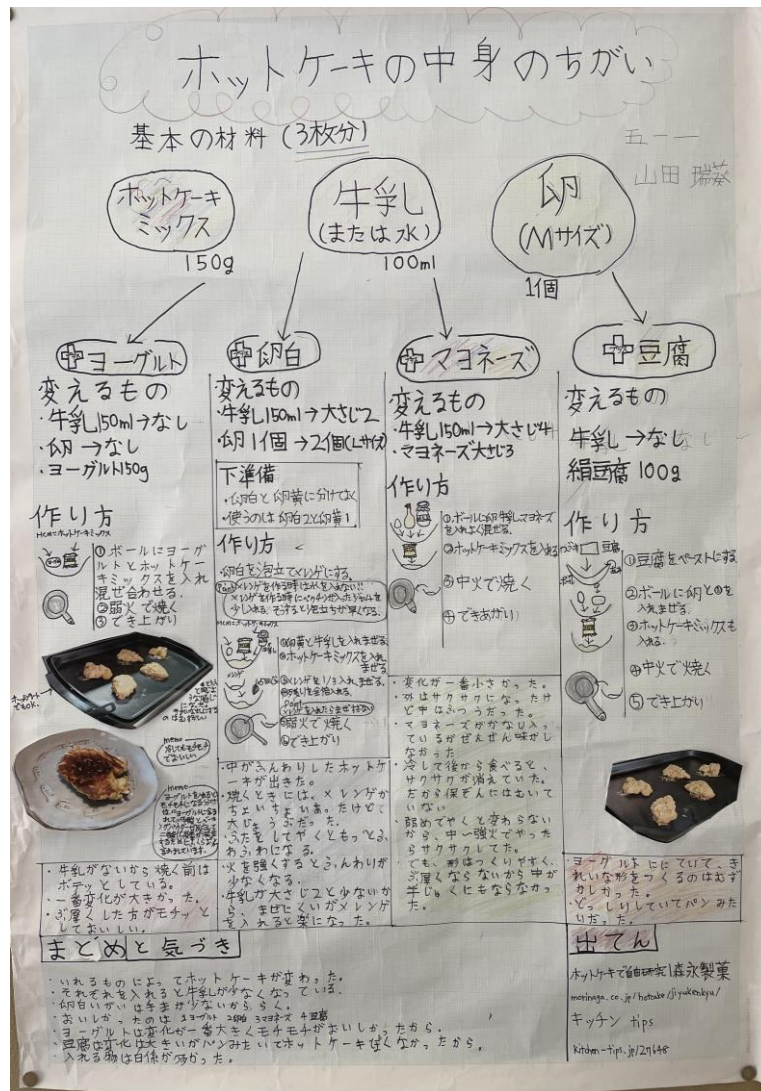 ホットケーキの中身のちがい
基本の材料(3枚分)
五一一
山田 瑞葵
ホットケーキ
ミックス
150g
牛乳
(または水)
100ml
卵
(Mサイズ)
1個
+ヨーグルト
変えるもの
・牛乳150ml→なし
・卵→なし
・ヨーグルト150g
作り方
HCM=ホットケーキミックス
①ボールにヨーグ
ルトとホットケー
キミックスを入れ
混ぜ合わせる。
②弱火で焼く
③でき上がり
memo
冷してもモチモチ
でおいしい
memo
・牛乳がないから焼く前は
ボテッとしている。
・一番変化が大きかった。
・ぶ厚くした方がモチッと
しておいしい。
+卵白
変えるもの
・牛乳150ml→大さじ2
・卵1個→2個(Lサイズ)
下準備
・卵白と卵黄に分けておく
・使うのは卵白2と卵黄1
作り方
卵白を泡立てメレンゲにする。
Point
メレンゲを作る時は水を入れない!!
HCM=ホットケーキミックス
①卵黄と牛乳を入れまぜる。
②ホットケーキミックスを入れ
まぜる
③メレンゲを1/3入れ、まぜる。
④残りを全部入れる。
Point
⑤弱火で焼く
⑥でき上がり
・中がふんわりしたホットケ
ーキが出きた。
・焼くときには、メレンゲが
ちょいちょいあったけど、
大じょうぶだった。
・ふたをしてやくともっとふ
わふわになる。
・火を強くするとふんわりが
少なくなる。
・牛乳が大さじ2と少ないか
ら、まぜにくいがメレンゲ
を入れると楽になった。
+マヨネーズ
変えるもの
・牛乳150ml→大さじ4
・マヨネーズ大さじ3
作り方
①ボールに卵牛乳マヨネーズ
を入れよく混ぜる。
②ホットケーキミックスを入れる
③中火で焼く
④できあがり
・変化が一番小さかった。
・外はサクサクになったけ
ど中はふつうだった。
・マヨネーズがかなり入っ
ているがぜんぜん味がし
なかった
・冷して後から食べると、
サクサクが消えていた。
だから保ぞんにはむいて
いない
・弱めでやくと変わらない
から、中〜強火でやった
らサクサクしてた。
・でも、形はつくりやすく、
ぶ厚くならないから中が
半じゅくにもならなかっ
た。
+豆腐
変えるもの
牛乳→なし
絹豆腐100g
作り方
豆腐
①豆腐をペーストにする
②ボールに卵と①を
入れまぜる。
③ホットケーキミックスも
入れる。
④中火で焼く
⑤でき上がり
・ヨーグルトににていて、き
れいな形をつくるのはむず
かしかった。
・どっしりしていてパンみた
いだった。
まとめと気づき
・いれるものによってホットケーキが変わった。
・それぞれを入れると牛乳が少なくなっている。
・卵白いがいは手まが少ないかららく。
・おいしかったのは 1ヨーグルト 2卵白 3マヨネーズ 4豆腐
・ヨーグルトは変化が一番大きくモチモチがおいしかったから。
・豆腐は変化は大きいがパンみたいでホットケーキぽくなかったから。
・入れる物は白係が多かった。
出てん
ホットケーキで自由研究|森永製菓
morinaga.co.jp/hotcake/jiyukenkyu/
キッチン tips
kitchen-tips.jp/27648